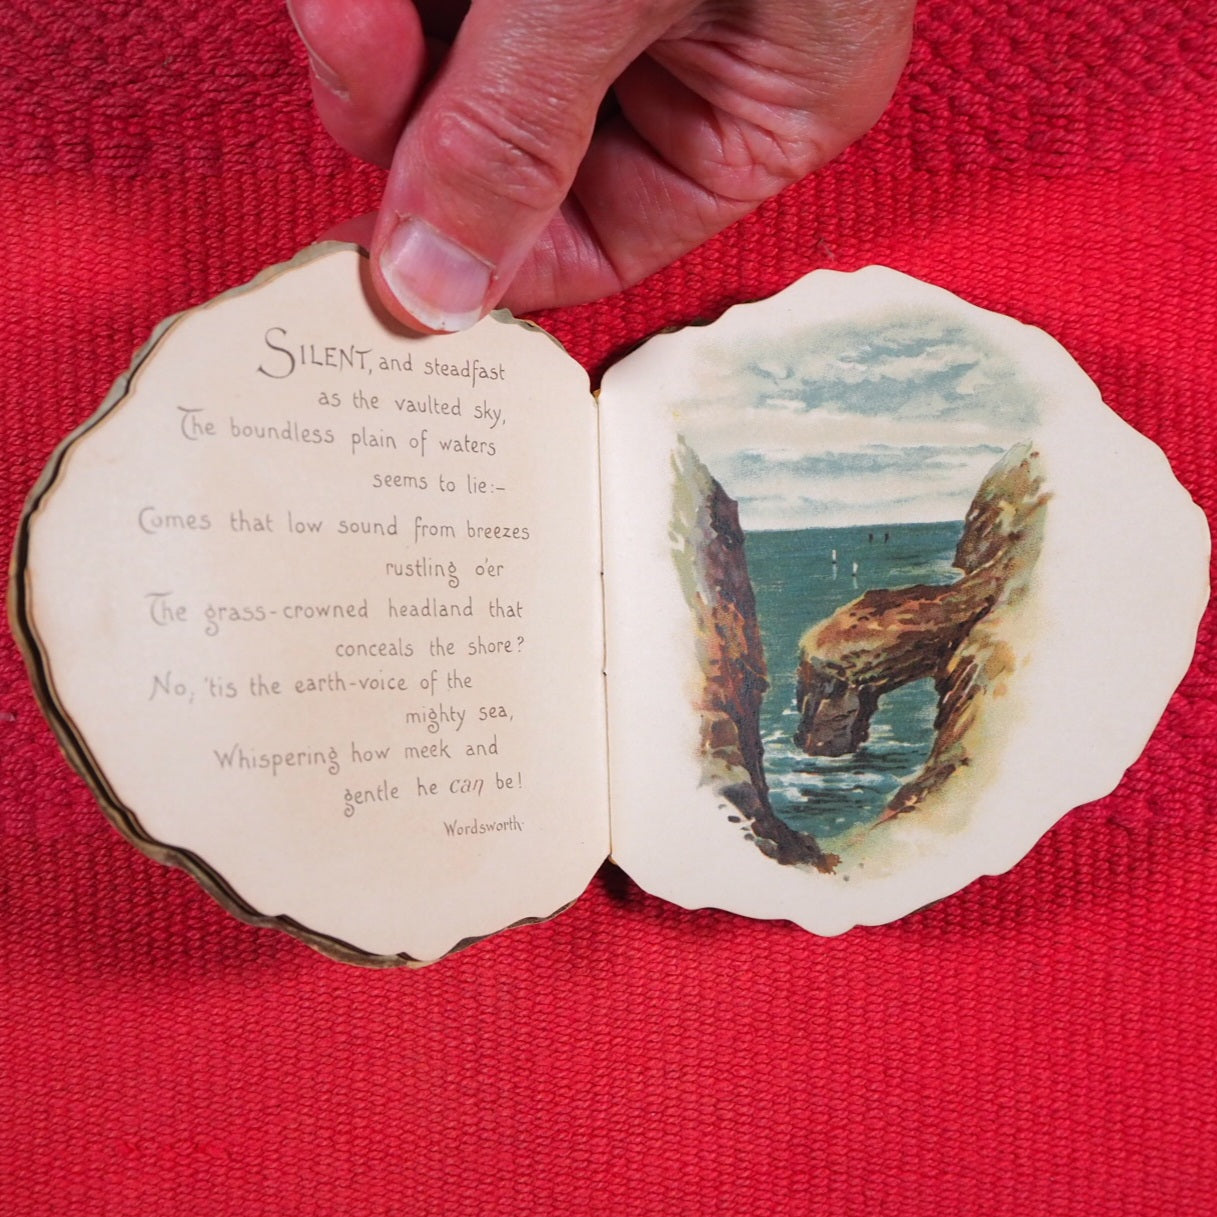 SILENT, and steadfast
as the vaulted sky,
The boundless plain of waters
seems to lie:–
Comes that low sound from breezes
rustling o'er
The grass-crowned headland that
conceals the shore?
No; 'tis the earth-voice of the
mighty sea,
Whispering how meek and
gentle he can be!
Wordsworth